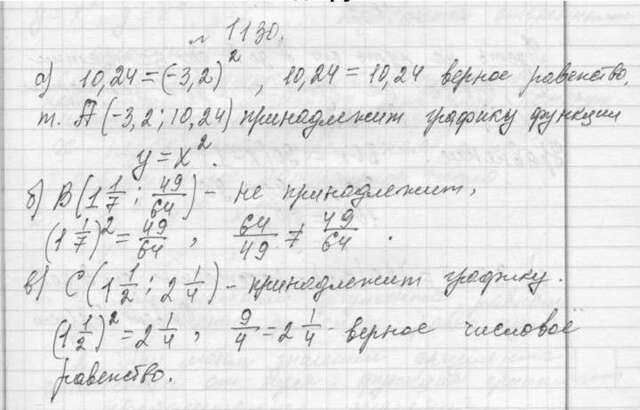 № 1130.
а) 10,24 = (-3,2)², 10,24 = 10,24 верное равенство,
т. А (-3,2; 10,24) принадлежит графику функции
y = x².
б) В (1 1/7; 49/64) - не принадлежит,
(1 1/7)² = 49/64, 64/49 ≠ 49/64.
в) С (1 1/2; 2 1/4) - принадлежит графику.
(1 1/2)² = 2 1/4, 9/4 = 2 1/4 верное числовое
равенство.